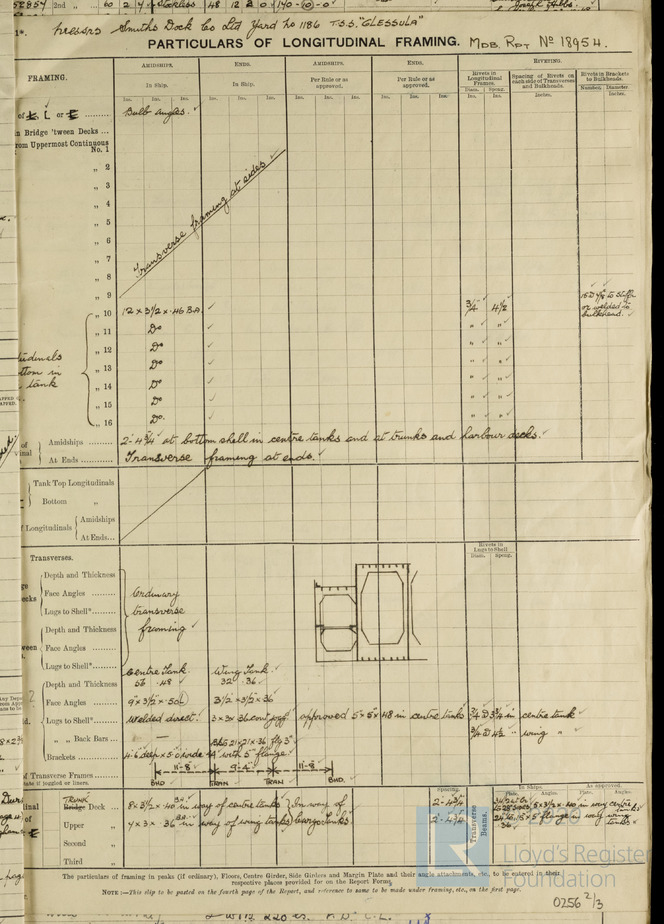 52854 2nd .. 60 2 4 4 Stockless 48 12 2 0 140-10-0
Messrs Smiths Dock Co Ltd Yard No 1186 T.S.S. "GLESSULA"
PARTICULARS OF LONGITUDINAL FRAMING. MDB. RPT No 18954.
FRAMING.
AMIDSHIPS. ENDS. AMIDSHIPS. ENDS. RIVETING.
In Ship. In Ship. Per Rule or as approved. Per Rule or as approved. Rivets in Longitudinal Frames. Spacing of Rivets on each side of Transverses and Bulkheads. Rivets in Brackets to Bulkheads.
Diam. Spcng. Number. Diameter
Ins. Ins. Ins. Ins. Ins. Ins. Ins. Ins. Ins. Ins. Ins. Ins. Ins. Ins. Inches. Inches.
of L or Bulb angles.
in Bridge 'tween Decks ...
rom Uppermost Continuous
No. 1
„ 2
„ 3
„ 4
„ 5
„ 6
„ 7
„ 8
„ 9
Transverse framing at sides
„ 10 12 x 3 1/2 x .46 B.A. 3/4 4 1/2
or welded to bulkhead.
„ 11 Do „ „
„ 12 Do „ „
„ 13 Do „ „
„ 14 Do „ „
„ 15 Do „ „
„ 16 Do „ „
tudinals
ttom in
tank
Amidships ........ 2'-4 3/4" at bottom shell in centre tanks and at trunks and harbour decks.
At Ends ........ Transverse framing at ends.
Tank Top Longitudinals
Bottom „
Longitudinals Amidships
At Ends...
Transverses.
Rivets in Lugs to Shell
Diam. Spcng.
Depth and Thickness
Face Angles ........
Lugs to Shell* ........
Depth and Thickness
Face Angles ........
Lugs to Shell* ........
Ordinary
transverse
framing
Centre Tank. Wing Tank.
Depth and Thickness 56 .48 32 .36
Face Angles ........ 9" x 3 1/2 x .50 3 1/2 x 3 1/2 x .36
Lugs to Shell* ........ Welded direct. 3 x 3 x .36 approved 5 x 5 x .48 in centre tanks 3/4 D 3 3/4 in centre tank
„ „ Back Bars ... 3/4 D 4 1/2 „ wing „
Brackets ........ 4'-6 deep x 5'-0 wide with 5" flange
11'-8 9'-4 11'-8
BHD TRAN TRAN BHD.
of Transverse Frames
Spacing. In Ships. As approved.
Plate. Angles. Plate. Angles.
TRUNK
Bridge Deck ... 8 x 3 1/2 x .40 in way of centre tanks In way of 2'-4 3/4
Upper „ 4 x 3 x .36 in way of wing tanks Cargo Tanks 2'-4 3/4
Second „
Third „
Transverse Beams.
The particulars of framing in peaks (if ordinary), Floors, Centre Girder, Side Girders and Margin Plate and their angle attachments, etc., to be entered in their
respective places provided for on the Report Form.
NOTE:—This slip to be pasted on the fourth page of the Report, and reference to same to be made under framing, etc., on the first page.
Lloyd's Register
Foundation
0256 2/3